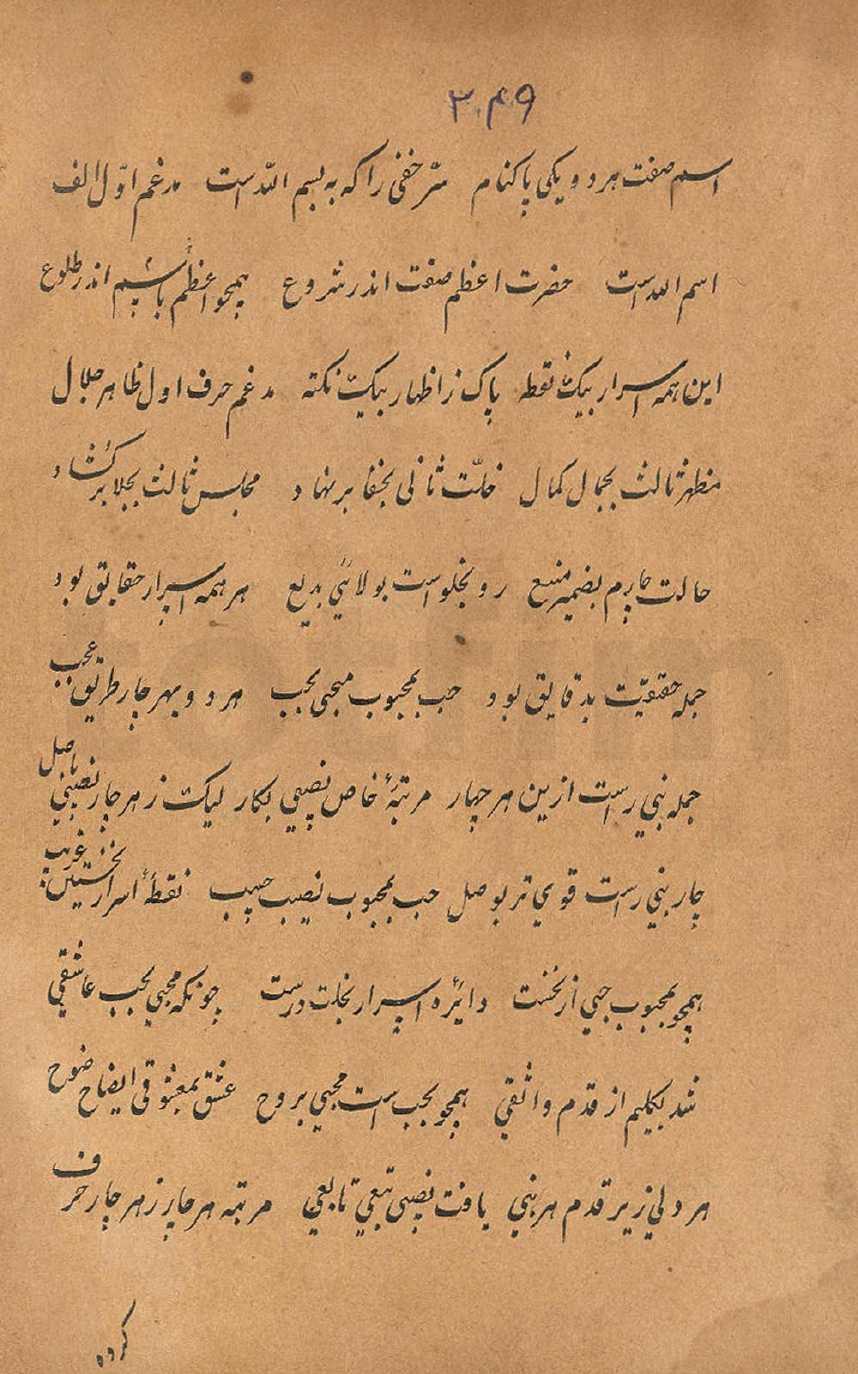 ۳۰۴۹
اسم صفت هر دو یکی پاکنام سر خفی را که به بسم الله است مدغم اول الف
اسم الله است حضرت اعظم صفت اندر شروع همچو اعظم باسم اندر طلوع
این همه اسرار بیک نقطه پاک ز اظهار بیک نکته مدغم حرف اول ظاهر جلال
مظهر ثالث بجمال کمال خلت ثانی بخفا بر نهاد مجلس ثالث بجلا بر کشاد
حالت چارم بضمیر منیع رو بخلو است بولائی بدیع هر همه اسرار حقایق بود
جمله حقیقت بدقایق بود حب بمحبوب محبی بحب هر دو بهر چار طریق عجب
جمله نبی راست ازین هر چهار مرتبهٔ خاص نصیبی بکار لیک ز هر چار نصیبی باصل
چار نبی راست قوی تر بوصل حب بمحبوب نصیب حبیب نقطهٔ اسرار نخستین غریب
همچو بمحبوب حبی از نخست دائره اسرار بخلت درست چونکه محبی بحب عاشقی
شد بکلیم از قدم واثقی همچو بحب است محبی بروح عشق بمعشوقی ایضاح ضوح
هر دلی زیر قدم هر نبی یافت نصیبی تبعی تابعی مرتبه هر چار ز هر چار حرف
کرده
totfim